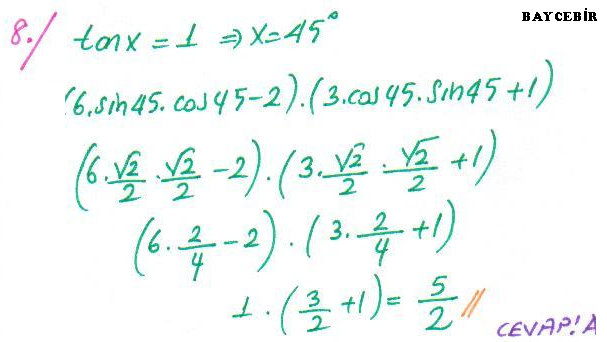 BAYCEBİR
8./ tanx = 1 ⇒ x = 45°
(6.sin45.cos45-2).(3.cos45.sin45+1)
(6.√2/2.√2/2-2).(3.√2/2.√2/2+1)
(6.2/4-2).(3.2/4+1)
1.(3/2+1)=5/2//
CEVAP!A